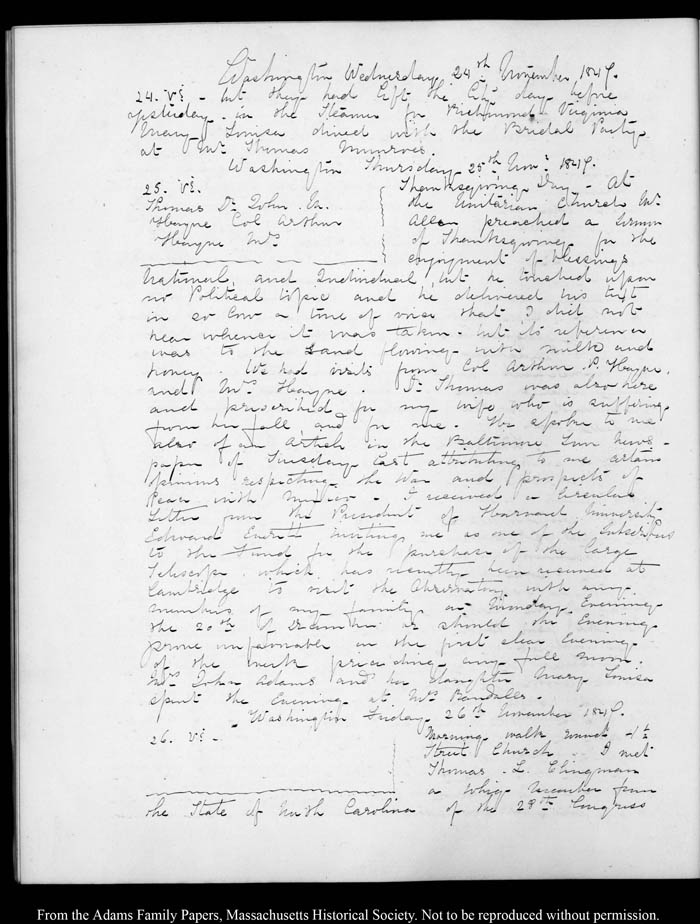 Washington Wednesday 24th November 1847.
24. VI. - but they had left the City day before
yesterday in the Steamer for Richmond Virginia
Mary Louisa dined with the Bridal Party
at Mr Thomas Munroe's.
Washington Thursday 25th Novr 1847.
25. VI. Thanksgiving Day - At
Thomas Dr John M. the Unitarian Church Mr
Hayne Col Arthur Allen preached a Sermon
Hayne Mrs of Thanksgiving for the
enjoyment of blessings
National, and Individual, but he touched upon
no Political topic and he delivered his text
in so low a tone of voice that I did not
hear whence it was taken - but its reference
was to the Land flowing with milk and
honey. We had visits from Col Arthur P. Hayne,
and Mrs Hayne. Dr Thomas was also here
and prescribed for my wife who is suffering
from her fall, and for me. He spoke to me
also of an Article in the Baltimore Sun News-
paper of Tuesday last attributing to me certain
opinions respecting the War and prospects of
Peace with Mexico - I received a Circular
Letter from the President of Harvard University
Edward Everett inviting me as one of the Subscribers
to the Fund for the purchase of the large
Telescope which has recently been received at
Cambridge to visit the Observatory with any
members of my family on Monday Evening
the 20th of December or should the Evening
prove unfavorable on the first clear Evening
of the week preceding any full moon.
Mrs John Adams and her daughter Mary Louisa
spent the Evening at Mrs
Washington Friday 26th November 1847.
26. VI - Morning walk round
Street Church I met
Thomas L. Clingman
a Whig Member from
the State of North Carolina of the 28th Congress
From the Adams Family Papers, Massachusetts Historical Society. Not to be reproduced without permission.